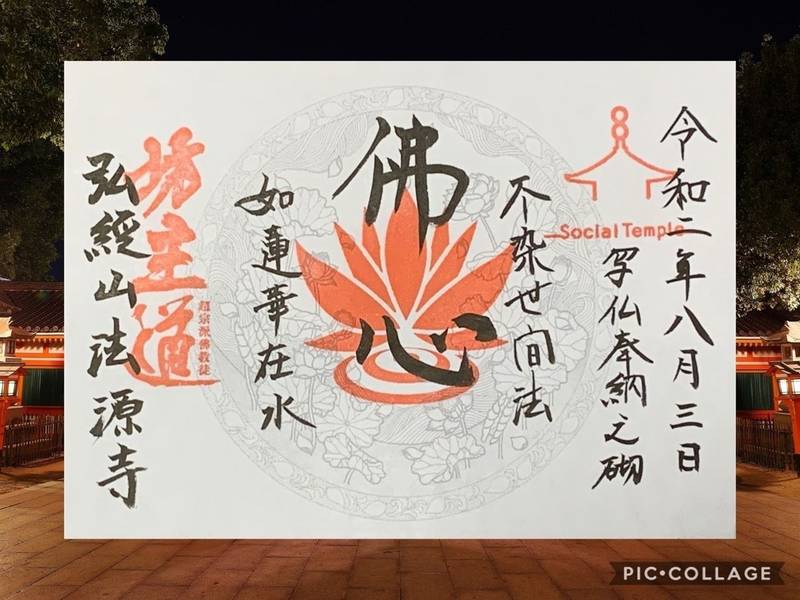 令和二年八月三日
Social Temple
写仏奉納之砌
不染世间法
佛心
如蓮華在水
坊主道
超宗派佛教徒
弘經山法源寺
PIC•COLLAGE